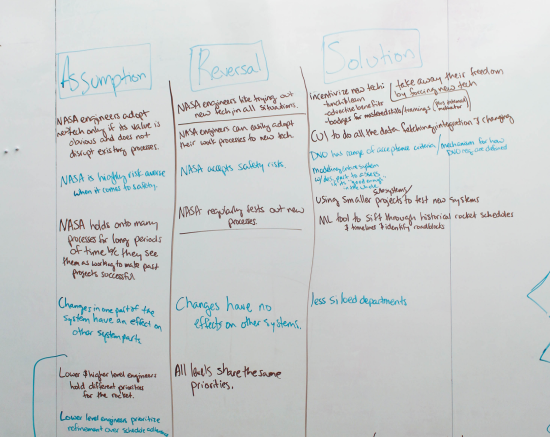 Assumption
NASA engineers adopt
new tech only if its value is
obvious and does not
disrupt existing processes.
NASA is highly risk averse
when it comes to safety.
NASA holds onto many
processes for long periods
of time b/c they see
them as working to make past
projects successful.
Changes in one part of the
system have an effect on
other system parts
Lower & higher level engineers
hold different priorities
for the rocket.
Lower level engineers prioritize
refinement over schedule adherence
Reversal
NASA engineers like trying out
new tech in all situations.
NASA engineers can easily adapt
their work processes to new tech.
NASA accepts safety risks.
NASA regularly tests out new
processes.
Changes have no
effects on other systems.
All levels share the same
priorities.
Solution
incentivize new tech:
- educative benefits
- badges for
take away their freedom
by forcing new tech
to do all the data integration & changing
DVO has range of acceptance criteria/mechanism for how
DVO reqs are defined
system
w/
using smaller projects to test new systems
subsystems/
ML tool to sift through historical rocket schedules
& timelines & identify roadblocks
less siloed departments